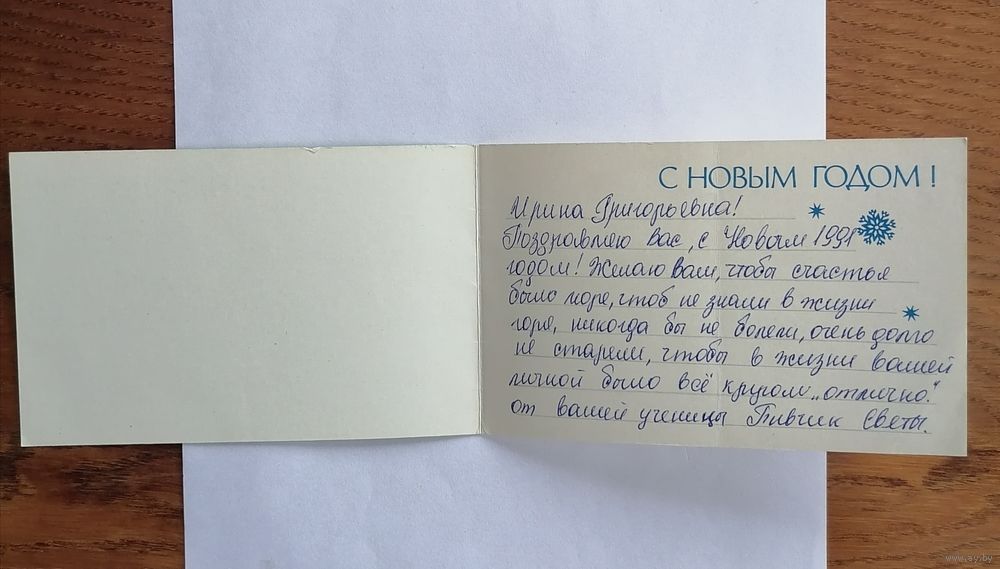 С НОВЫМ ГОДОМ!
Ирина Григорьевна!
Поздравляю вас, с Новым 1991
годом! Желаю вам, чтобы счастья
было море, чтоб не знали в жизни
горя, никогда бы не болели, очень долго
не старели, чтобы в жизни вашей
личной было всё кругом „отлично."
от вашей ученицы Светы.
www.ay.by